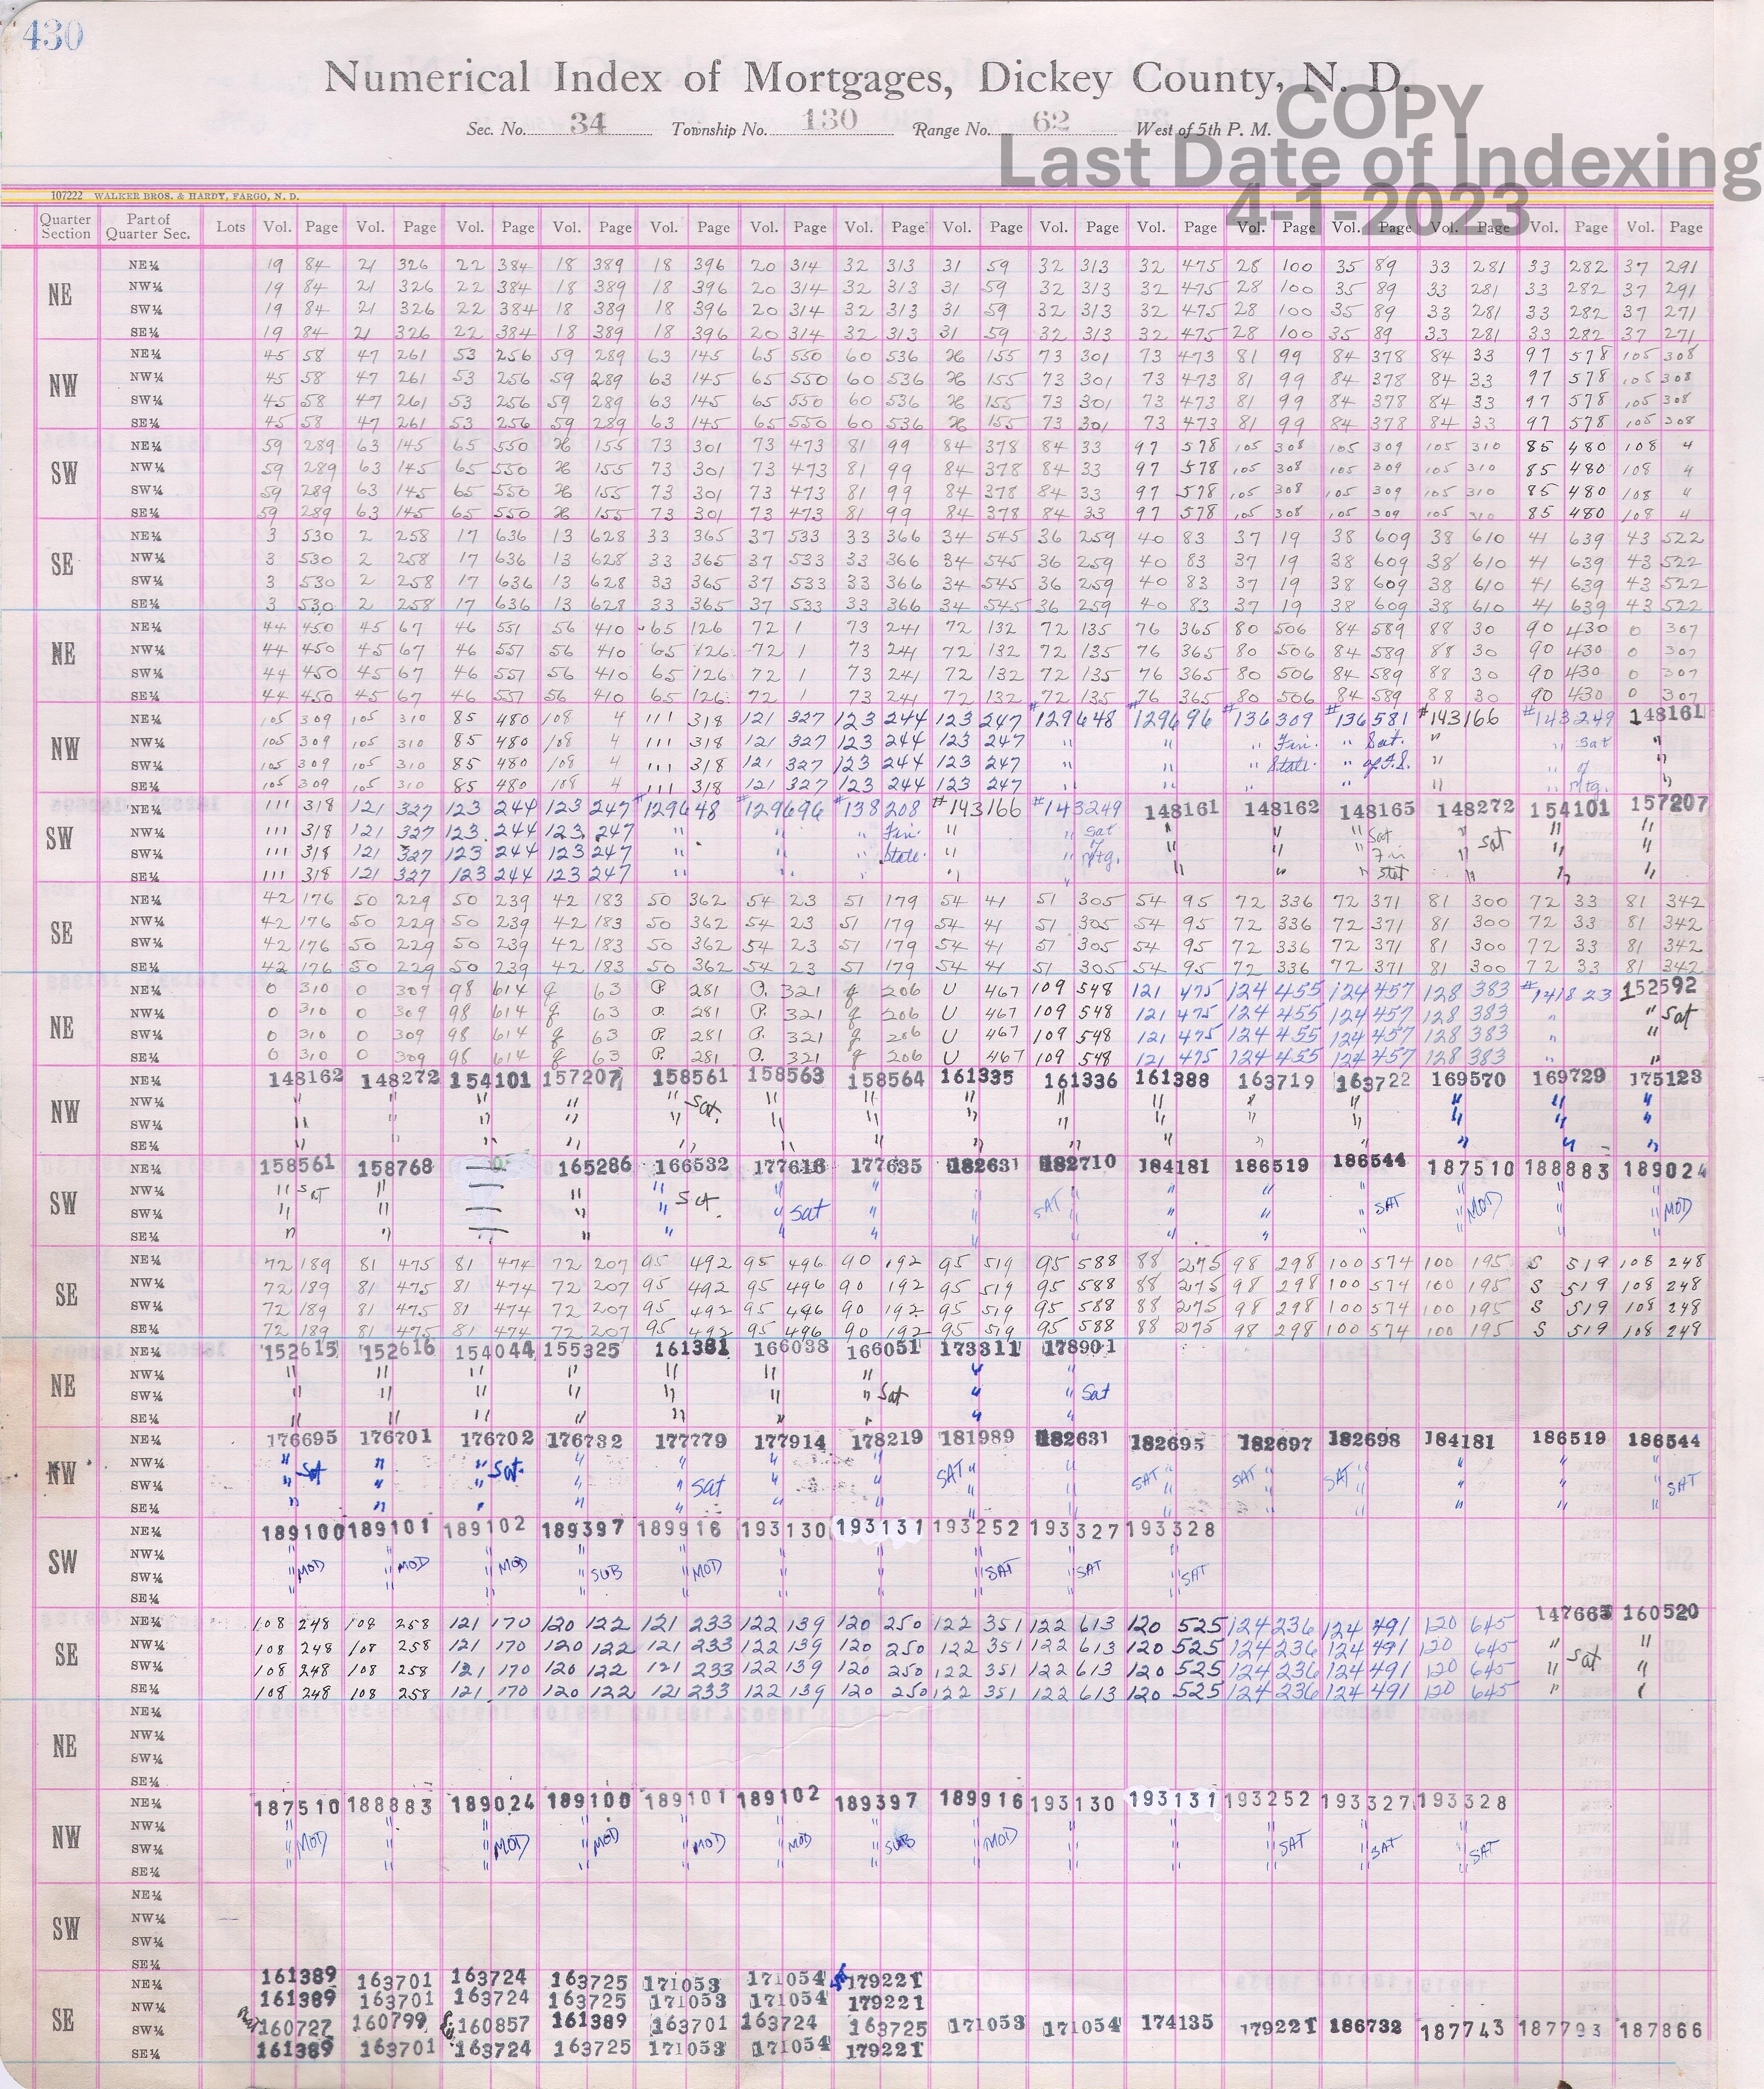 430
Numerical Index of Mortgages, Dickey County, N. D.
Sec. No. 34 Township No. 130 Range No. 62 West of 5th P. M.
COPY
Last Date of Indexing
4-1-2023
107222 WALKER BROS. & HARDY, FARGO, N. D.
Quarter Section Part of Quarter Sec. Lots Vol. Page Vol. Page Vol. Page Vol. Page Vol. Page Vol. Page Vol. Page Vol. Page Vol. Page Vol. Page Vol. Page Vol. Page Vol. Page Vol. Page Vol. Page
NE
NE¼ 19 84 21 326 22 384 18 389 18 396 20 314 32 313 31 59 32 313 32 475 28 100 35 89 33 281 33 282 37 291
NW¼ 19 84 21 326 22 384 18 389 18 396 20 314 32 313 31 59 32 313 32 475 28 100 35 89 33 281 33 282 37 291
SW¼ 19 84 21 326 22 384 18 389 18 396 20 314 32 313 31 59 32 313 32 475 28 100 35 89 33 281 33 282 37 271
SE¼ 19 84 21 326 22 384 18 389 18 396 20 314 32 313 31 59 32 313 32 475 28 100 35 89 33 281 33 282 37 271
NW
NE¼ 45 58 47 261 53 256 59 289 63 145 65 550 60 536 155 73 301 73 473 81 99 84 378 84 33 97 578 105 308
NW¼ 45 58 47 261 53 256 59 289 63 145 65 550 60 536 155 73 301 73 473 81 99 84 378 84 33 97 578 105 308
SW¼ 45 58 47 261 53 256 59 289 63 145 65 550 60 536 155 73 301 73 473 81 99 84 378 84 33 97 578 105 308
SE¼ 45 58 47 261 53 256 59 289 63 145 65 550 60 536 155 73 301 73 473 81 99 84 378 84 33 97 578 105 308
SW
NE¼ 59 289 63 145 65 550 155 73 301 73 473 81 99 84 378 84 33 97 578 105 308 105 309 105 310 85 480 108 4
NW¼ 59 289 63 145 65 550 155 73 301 73 473 81 99 84 378 84 33 97 578 105 308 105 309 105 310 85 480 108 4
SW¼ 59 289 63 145 65 550 155 73 301 73 473 81 99 84 378 84 33 97 578 105 308 105 309 105 310 85 480 108 4
SE¼ 59 289 63 145 65 550 155 73 301 73 473 81 99 84 378 84 33 97 578 105 308 105 309 105 310 85 480 108 4
SE
NE¼ 3 530 2 258 17 636 13 628 33 365 37 533 33 366 34 545 36 259 40 83 37 19 38 609 38 610 41 639 43 522
NW¼ 3 530 2 258 17 636 13 628 33 365 37 533 33 366 34 545 36 259 40 83 37 19 38 609 38 610 41 639 43 522
SW¼ 3 530 2 258 17 636 13 628 33 365 37 533 33 366 34 545 36 259 40 83 37 19 38 609 38 610 41 639 43 522
SE¼ 3 530 2 258 17 636 13 628 33 365 37 533 33 366 34 545 36 259 40 83 37 19 38 609 38 610 41 639 43 522
NE
NE¼ 44 450 45 67 46 551 56 410 65 126 72 1 73 241 72 132 72 135 76 365 80 506 84 589 88 30 90 430 0 307
NW¼ 44 450 45 67 46 557 56 410 65 126 72 1 73 241 72 132 72 135 76 365 80 506 84 589 88 30 90 430 0 307
SW¼ 44 450 45 67 46 557 56 410 65 126 72 1 73 241 72 132 72 135 76 365 80 506 84 589 88 30 90 430 0 307
SE¼ 44 450 45 67 46 557 56 410 65 126 72 1 73 241 72 132 72 135 76 365 80 506 84 589 88 30 90 430 0 307
NW
NE¼ 105 309 105 310 85 480 108 4 111 318 121 327 123 244 123 247 #129648 #129696 #136309 #136581 #143166 #143249 148161
NW¼ 105 309 105 310 85 480 108 4 111 318 121 327 123 244 123 247 " " " Fin. " Sat. " " Sat "
SW¼ 105 309 105 310 85 480 108 4 111 318 121 327 123 244 123 247 " " " State. " of F.S. " " of "
SE¼ 105 309 105 310 85 480 108 4 111 318 121 327 123 244 123 247 " " " " " " mtg. "
SW
NE¼ 111 318 121 327 123 244 123 247 #129648 #129696 #138208 #143166 #143249 148161 148162 148165 148272 154101 157207
NW¼ 111 318 121 327 123 244 123 247 " " " Fin. " " Sat " " " Sat " Sat " "
SW¼ 111 318 121 327 123 244 123 247 " " State. " " of mtg. " " " Fin " " "
SE¼ 111 318 121 327 123 244 123 247 " " " " " " " stat " " "
SE
NE¼ 42 176 50 229 50 239 42 183 50 362 54 23 51 179 54 41 51 305 54 95 72 336 72 371 81 300 72 33 81 342
NW¼ 42 176 50 229 50 239 42 183 50 362 54 23 51 179 54 41 51 305 54 95 72 336 72 371 81 300 72 33 81 342
SW¼ 42 176 50 229 50 239 42 183 50 362 54 23 51 179 54 41 51 305 54 95 72 336 72 371 81 300 72 33 81 342
SE¼ 42 176 50 229 50 239 42 183 50 362 54 23 51 179 54 41 51 305 54 95 72 336 72 371 81 300 72 33 81 342
NE
NE¼ 0 310 0 309 98 614 g 63 P. 281 P. 321 g 206 U 467 109 548 121 475 124 455 124 457 128 383 #141823 152592
NW¼ 0 310 0 309 98 614 g 63 P. 281 P. 321 g 206 U 467 109 548 121 475 124 455 124 457 128 383 " " Sat
SW¼ 0 310 0 309 98 614 g 63 P. 281 P. 321 g 206 U 467 109 548 121 475 124 455 124 457 128 383 " "
SE¼ 0 310 0 309 98 614 g 63 P. 281 P. 321 g 206 U 467 109 548 121 475 124 455 124 457 128 383 " "
NW
NE¼ 148162 148272 154101 157207 158561 158563 158564 161335 161336 161388 163719 163722 169570 169729 175123
NW¼ " " " " " Sat. " " " " " " " " " "
SW¼ " " " " " " " " " " " " " " "
SE¼ " " " " " " " " " " " " " " "
SW
NE¼ 158561 158768 165286 166532 177616 177635 182631 182710 184181 186519 186544 187510 188883 189024
NW¼ " SAT " " " Sat " " " SAT " " " " SAT " MOD " " MOD
SW¼ " " " " " Sat " " " " " " " " "
SE¼ " " " " " " " " " " " " " "
SE
NE¼ 72 189 81 475 81 474 72 207 95 492 95 496 90 192 95 519 95 588 88 275 98 298 100 574 100 195 S 519 108 248
NW¼ 72 189 81 475 81 474 72 207 95 492 95 496 90 192 95 519 95 588 88 275 98 298 100 574 100 195 S 519 108 248
SW¼ 72 189 81 475 81 474 72 207 95 492 95 496 90 192 95 519 95 588 88 275 98 298 100 574 100 195 S 519 108 248
SE¼ 72 189 81 475 81 474 72 207 95 492 95 496 90 192 95 519 95 588 88 275 98 298 100 574 100 195 S 519 108 248
NE
NE¼ 152615 152616 154044 155325 161381 166038 166051 173311 178901
NW¼ " " " " " " " " "
SW¼ " " " " " " " Sat " " Sat
SE¼ " " " " " " " " "
NW
NE¼ 176695 176701 176702 176732 177779 177914 178219 181989 182631 182695 182697 182698 184181 186519 186544
NW¼ " Sat " " Sat. " " " " SAT " " SAT " SAT " SAT " " " "
SW¼ " " " " " Sat " " " " " " " " " " SAT
SE¼ " " " " " " " " " " " " " " "
SW
NE¼ 189100 189101 189102 189397 189916 193130 193131 193252 193327 193328
NW¼ " " " " " " " " " "
SW¼ " MOD " MOD " MOD " SUB " MOD " " " SAT " SAT " SAT
SE¼ " " " " " " " " " "
SE
NE¼ 108 248 108 258 121 170 120 122 121 233 122 139 120 250 122 351 122 613 120 525 124 236 124 491 120 645 147663 160520
NW¼ 108 248 108 258 121 170 120 122 121 233 122 139 120 250 122 351 122 613 120 525 124 236 124 491 120 645 " Sat "
SW¼ 108 248 108 258 121 170 120 122 121 233 122 139 120 250 122 351 122 613 120 525 124 236 124 491 120 645 " "
SE¼ 108 248 108 258 121 170 120 122 121 233 122 139 120 250 122 351 122 613 120 525 124 236 124 491 120 645 "
NE
NE¼
NW¼
SW¼
SE¼
NW
NE¼ 187510 188883 189024 189100 189101 189102 189397 189916 193130 193131 193252 193327 193328
NW¼ " " " " " " " " " " " " "
SW¼ " MOD " " MOD " MOD " MOD " MOD " SUB " MOD " " " SAT " SAT " SAT
SE¼ " " " " " " " " " " " " "
SW
NE¼
NW¼
SW¼
SE¼
SE
NE¼ 161389 163701 163724 163725 171053 171054 179221
NW¼ 161389 163701 163724 163725 171053 171054 179221
SW¼ 160727 160799 160857 161389 163701 163724 163725 171053 171054 174135 179221 186732 187743 187793 187866
SE¼ 161389 163701 163724 163725 171053 171054 179221